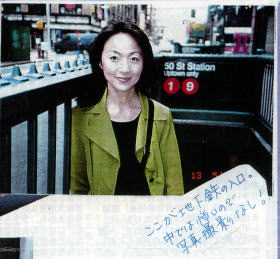 50 St Station
Uptown only
1 9
13 5
ここが地下鉄の入口。
中でよ怖いので
写真撮影なし!